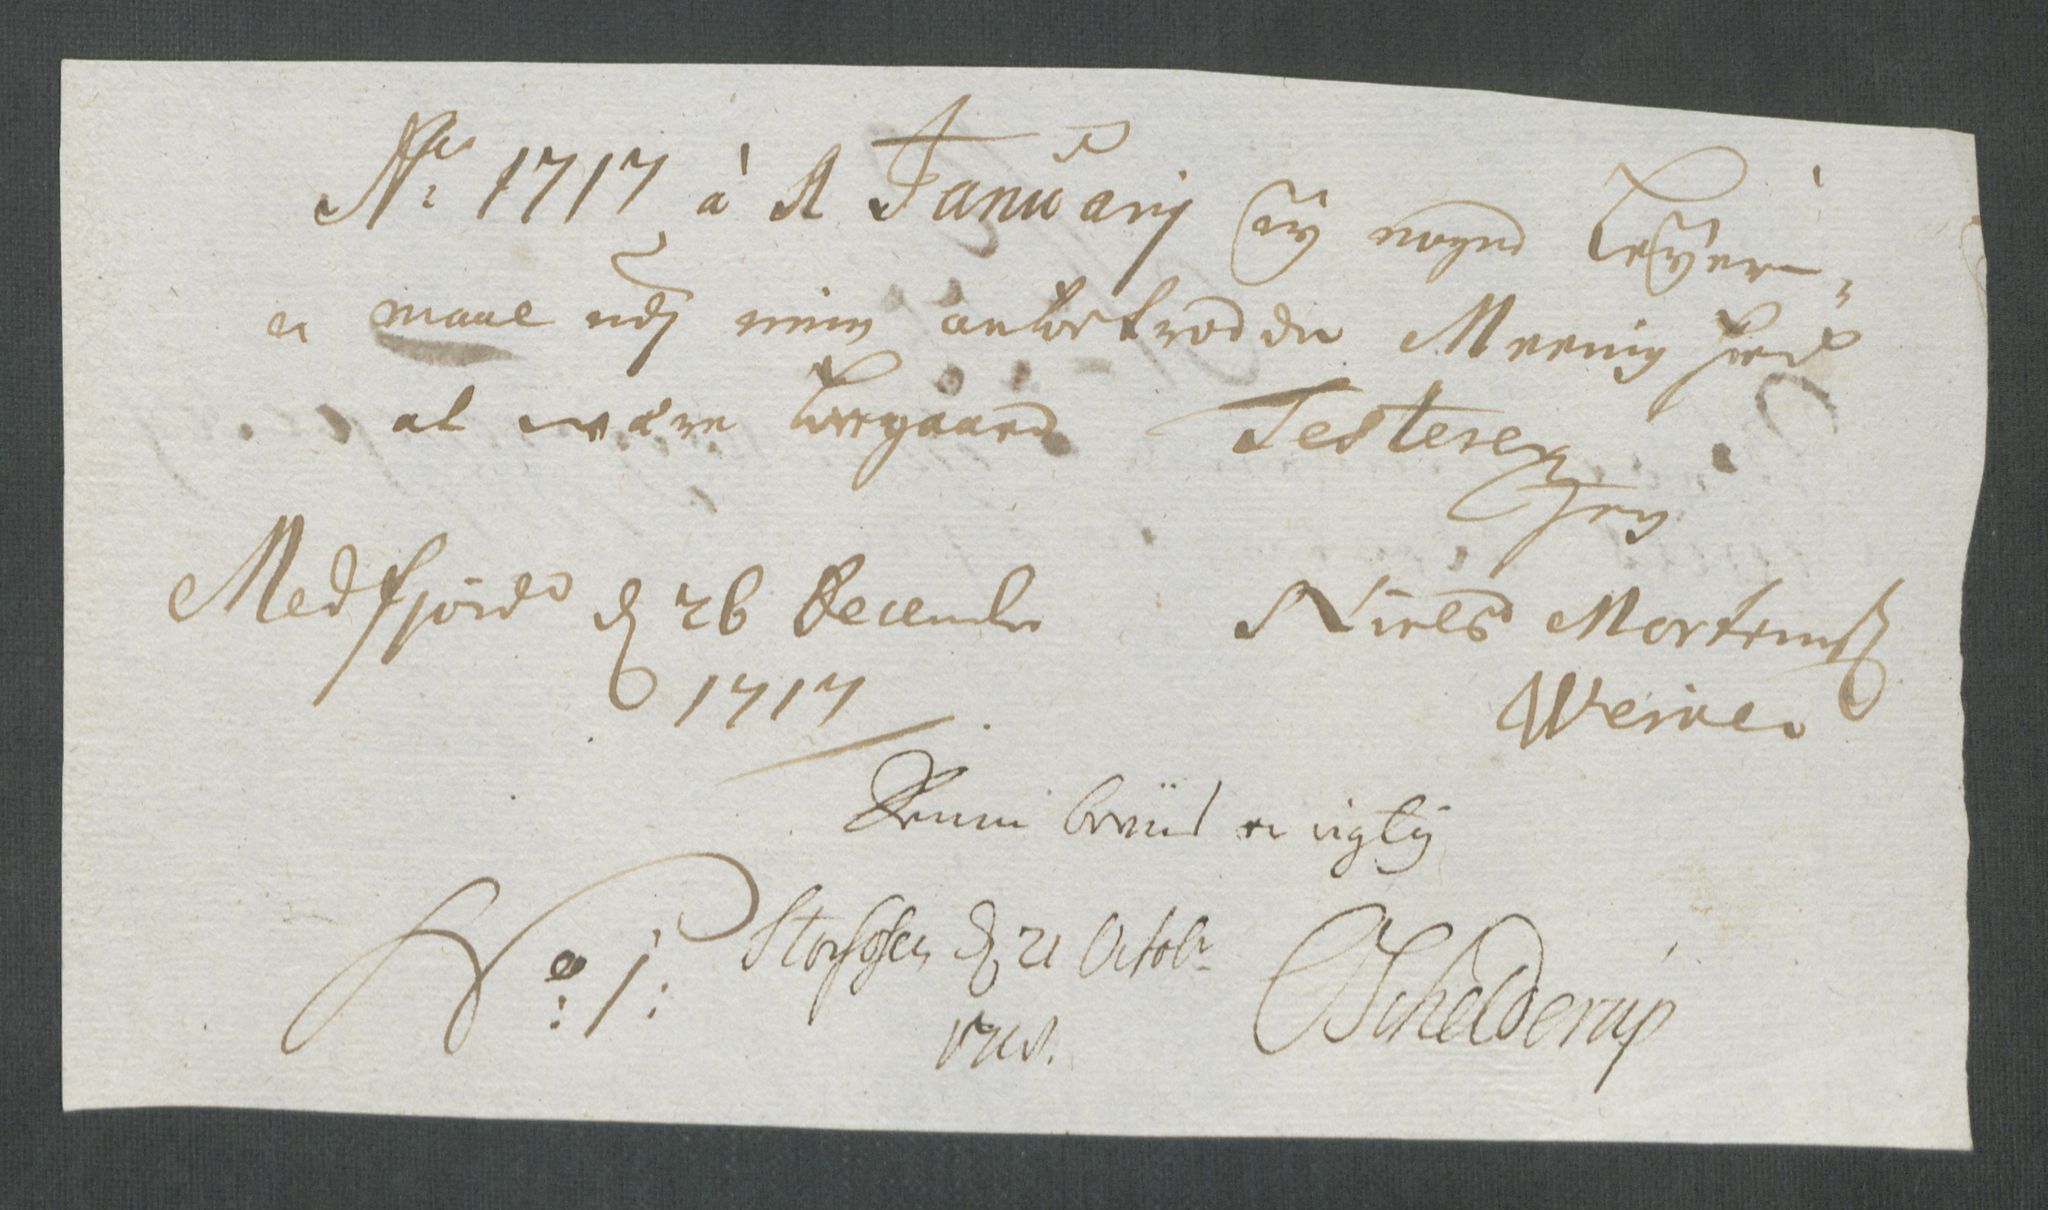 Ao 1717 à A Januarij ey nogen Leyer-
maal udj min anbetrodde Meenighed
at være begaaed Testerer
Jeg
Medfjord d 26 December Niels Mortensß
1717 Weines
Denne beviis er rigtig
No 1: Storfosen d 21 Octobr
1718. Schelderup